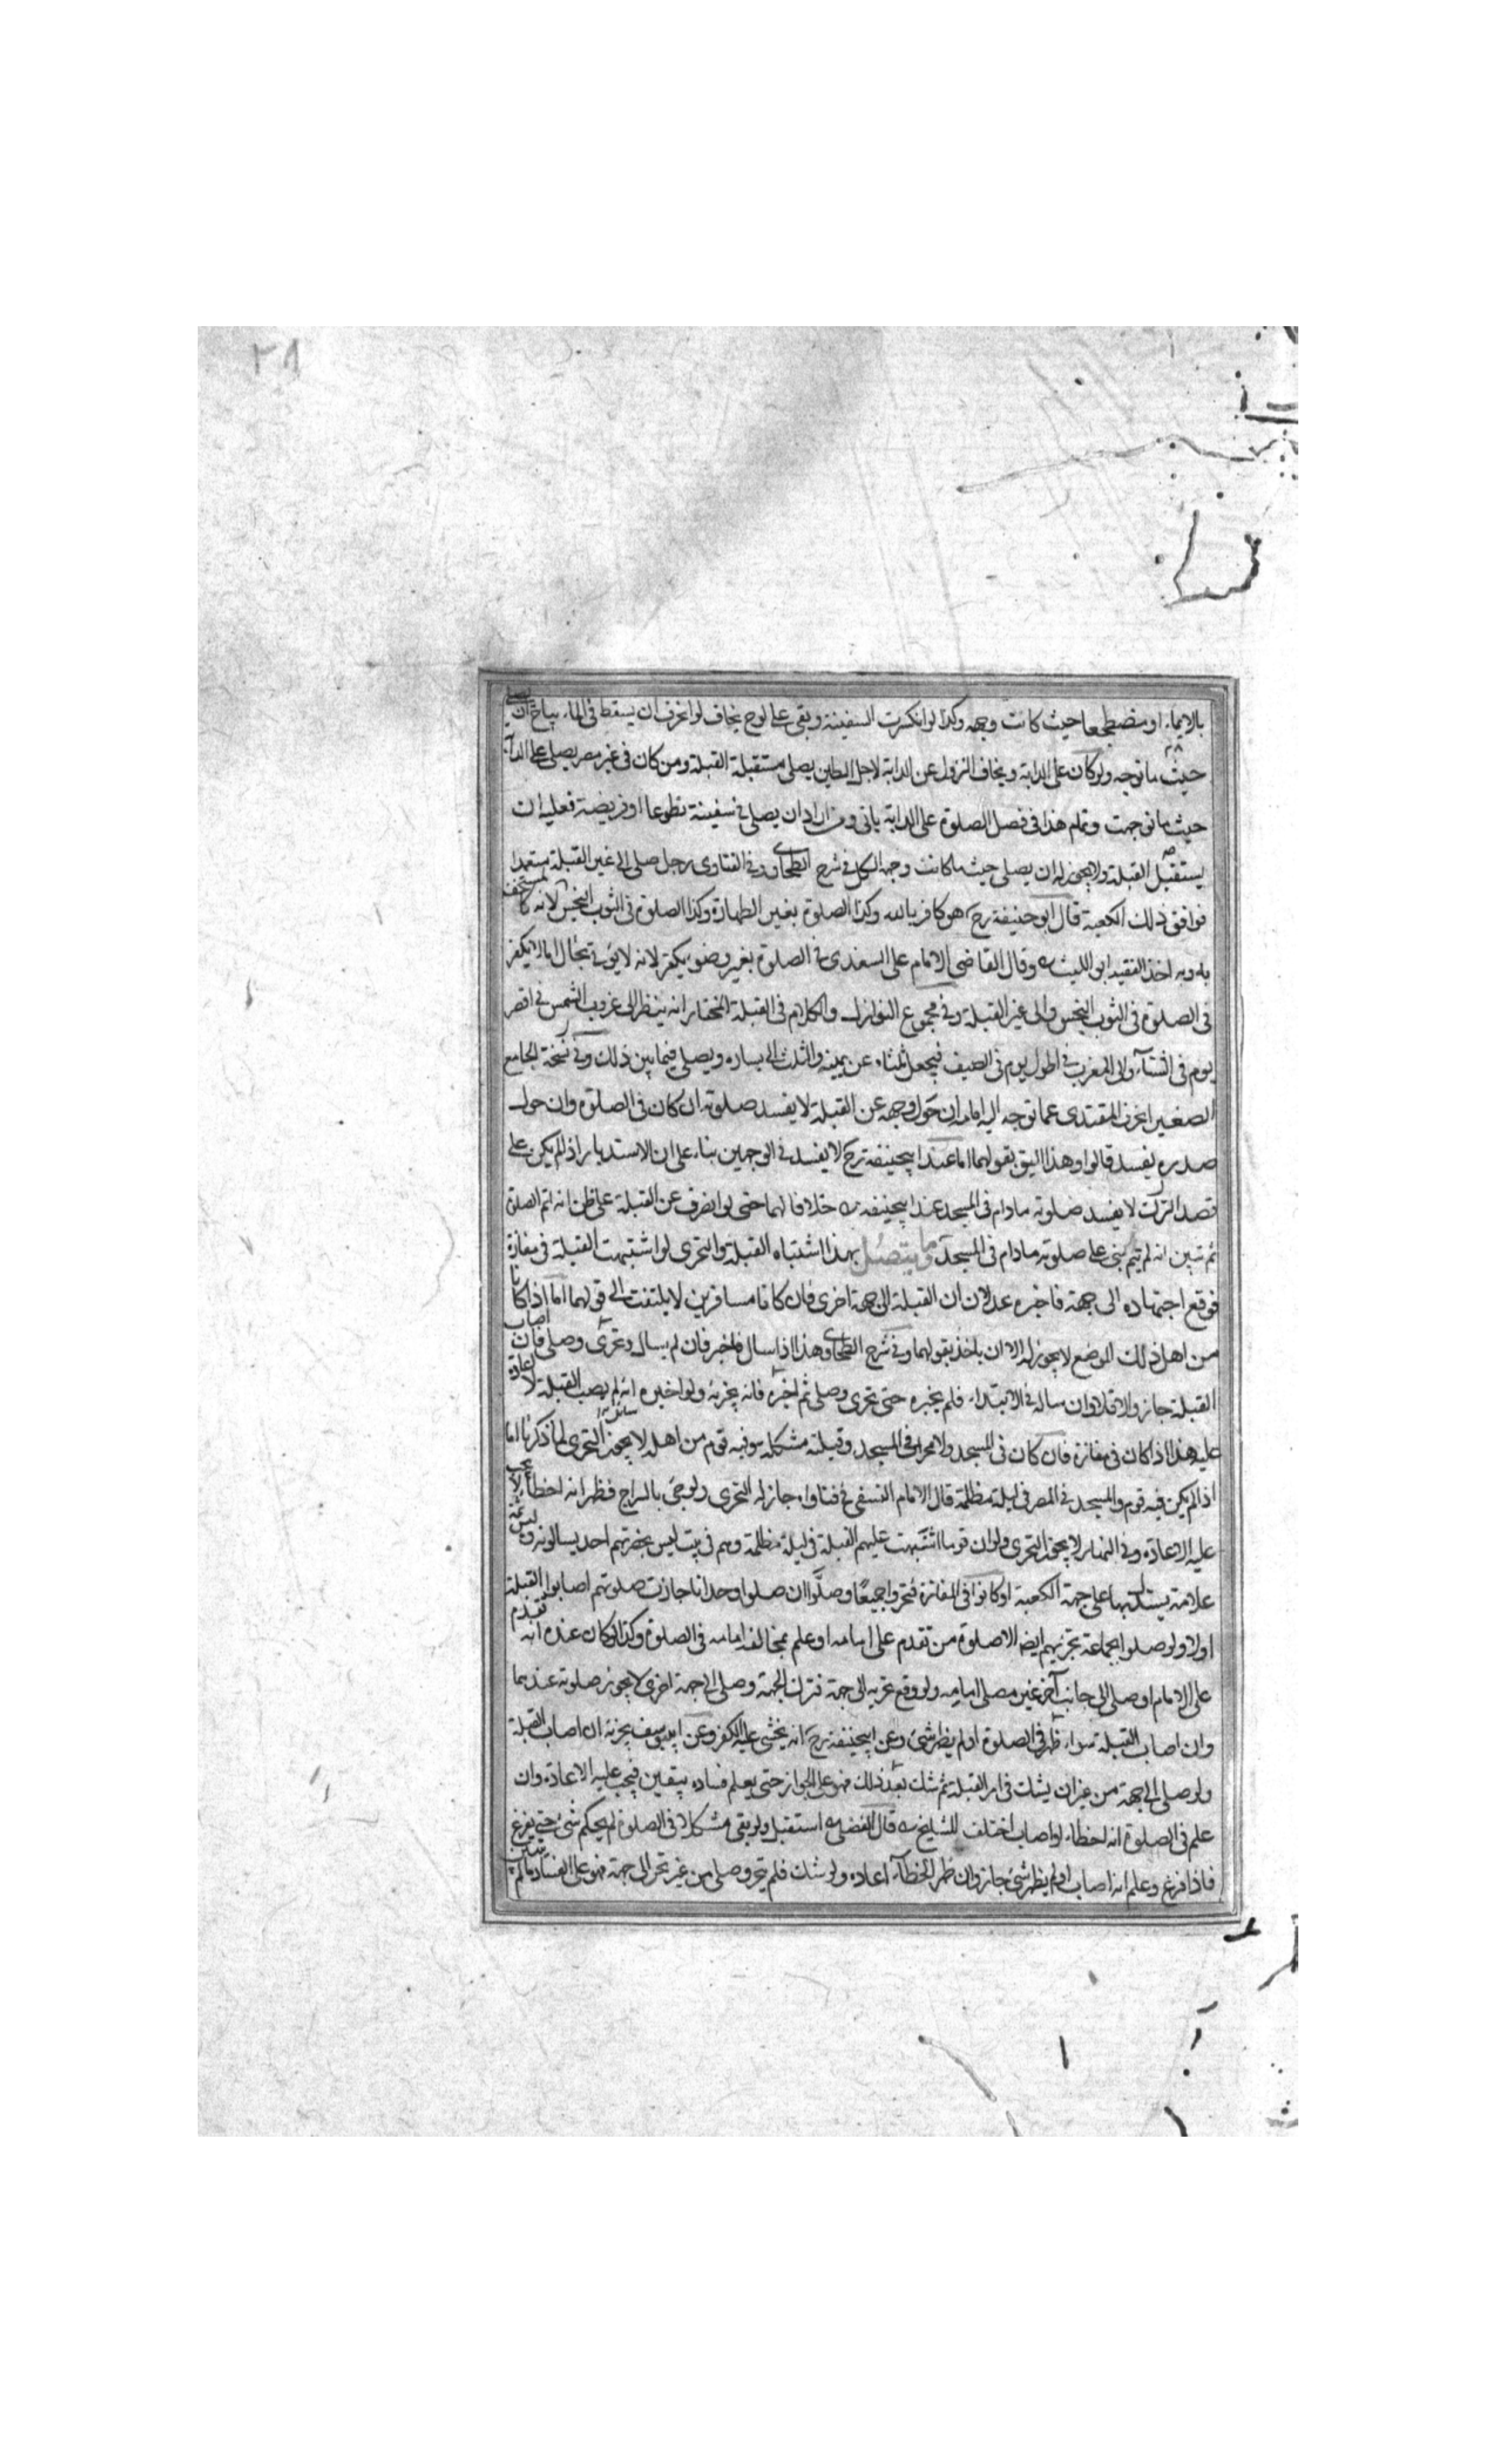 ٢٨
بالايماء او مضطجعا حيث كانت وجهه وكذا لو انكسرت السفينة وبقى على لوح يخاف لو انحرف ان يسقط فى الماء يباح ان يصلى
حيث ما توجه ولو كان على الدابة ويخاف النزول عن الدابة لاجل الطين يصلى مستقبلة القبلة ومن كان فى غير مصر يصلى على الدابة
حيث ما توجهت وتمام هذا فى فصل الصلوة على الدابة ياتى ومن اراد ان يصلى فى سفينة تطوعا او فريضة فعليه ان
يستقبل القبلة ولا يجوز له ان يصلى حيث ما كانت وجهه الكل فى شرح الطحاوى وفى الفتاوى رجل صلى الى غير القبلة متعمدا
فوافق ذلك الكعبة قال ابو حنيفة رح هو كافر بالله وكذا الصلوة بغير الطهارة وكذا الصلوة فى الثوب النجس لانه كالمستخف
به وبه اخذ الفقيه ابو الليث وقال القاضى الامام على السغدى فى الصلوة بغير وضوء يكفر لانه لا يؤتى بحال اما لا يكفر
فى الصلوة فى الثوب النجس والى غير القبلة وفى مجموع النوازل والكلام فى القبلة المختار انه ينظر الى غروب الشمس فى اقصر
يوم فى الشتاء والى المغرب فى اطول يوم فى الصيف فيجعل ثلثاه عن يمينه والثلث الى يساره ويصلى فيما بين ذلك وفى نسخة الجامع
الصغير انحرف المقتدى عما توجه اليه امامه ان حول وجهه عن القبلة لا يفسد صلوته ان كان فى الصلوة وان حول
صدره يفسد قالوا وهذا اليق بقولهما اما عند ابيحنيفة رح لا يفسد فى الوجهين بناء على ان الاستدبار اذا لم يكن على
قصد الترك لا يفسد صلوته مادام فى المسجد عند ابيحنيفة خلافا لهما حتى لو انصرف عن القبلة على ظن انه اتم الصلوة
ثم تبين انه لم يتم بنى على صلوته مادام فى المسجد وما يتصل بهذا اشتباه القبلة والتحرى لو اشتبهت القبلة فى مفازة
فوقع اجتهاده الى جهة فاخبره عدلان ان القبلة الى جهة اخرى فان كانا مسافرين لا يلتفت الى قولهما اما اذا كانا
من اهل ذلك الموضع لا يجوز له الا ان ياخذ بقولهما وفى شرح الطحاوى هذا اذا سال فاخبر فان لم يسال وتحرى وصلى فان اصاب
القبلة جاز والا فلا وان ساله فى الابتداء فلم يخبره حتى تحرى وصلى ثم اخبره فانه يجزئه ولو اخبره انه لم يصب القبلة لا اعادة
عليه هذا اذا كان فى مفازة فان كان فى المسجد ولا محراب فى المسجد وقبلته مشكلة وفيه قوم من اهله لا يجوز التحرى لما ذكرنا اما
اذا لم يكن فيه قوم والمسجد فى المصر فى ليلة مظلمة قال الامام النسفى فى فتاواه جاز له التحرى ولو جئ بالسراج فظهر انه اخطأ لا يجب
عليه الاعادة وفى النهار لا يجوز التحرى ولو ان قوما اشتبهت عليهم القبلة فى ليلة مظلمة وهم فى بيت ليس بحضرتهم احد يسالونه وليس ثمة
علامة يستدل بها على جهة الكعبة او كانوا فى المفازة فتحروا جميعا وصلوا ان صلوا وحدانا جازت صلوتهم اصابوا القبلة
او لا ولو صلوا بجماعة يجزيهم ايضا الا صلوة من تقدم على امامه او علم بمخالفة امامه فى الصلوة وكذا لو كان عنده انه تقدم
على الامام او صلى الى جانب آخر غير مصلى امامه ولو وقع تحريه الى جهة فترك الجهة وصلى الى جهة اخرى لا يجوز صلوته عندهما
وان اصاب القبلة سواء ظهر فى الصلوة او لم يظهر شئ وعن ابيحنيفة رح انه يخشى عليه الكفر وعن ابى يوسف يجزئه ان اصاب القبلة
ولو صلى الى جهة من غير ان يشك فى امر القبلة ثم شك بعد ذلك فهو على الجواز حتى يعلم فساده بيقين فيجب عليه الاعادة وان
علم فى الصلوة انه اخطاء او اصاب اختلف المشايخ قال الفضلى استقبل ولو بقى مشكلا فى الصلوة لم يحكم شئ حتى يفرغ
فاذا فرغ وعلم انه اصاب او لم يظهر شئ جاز وان ظهر الخطأ اعاده ولو شك فلم يتحر وصلى من غير تحر الى جهة فهو على الفساد مالم